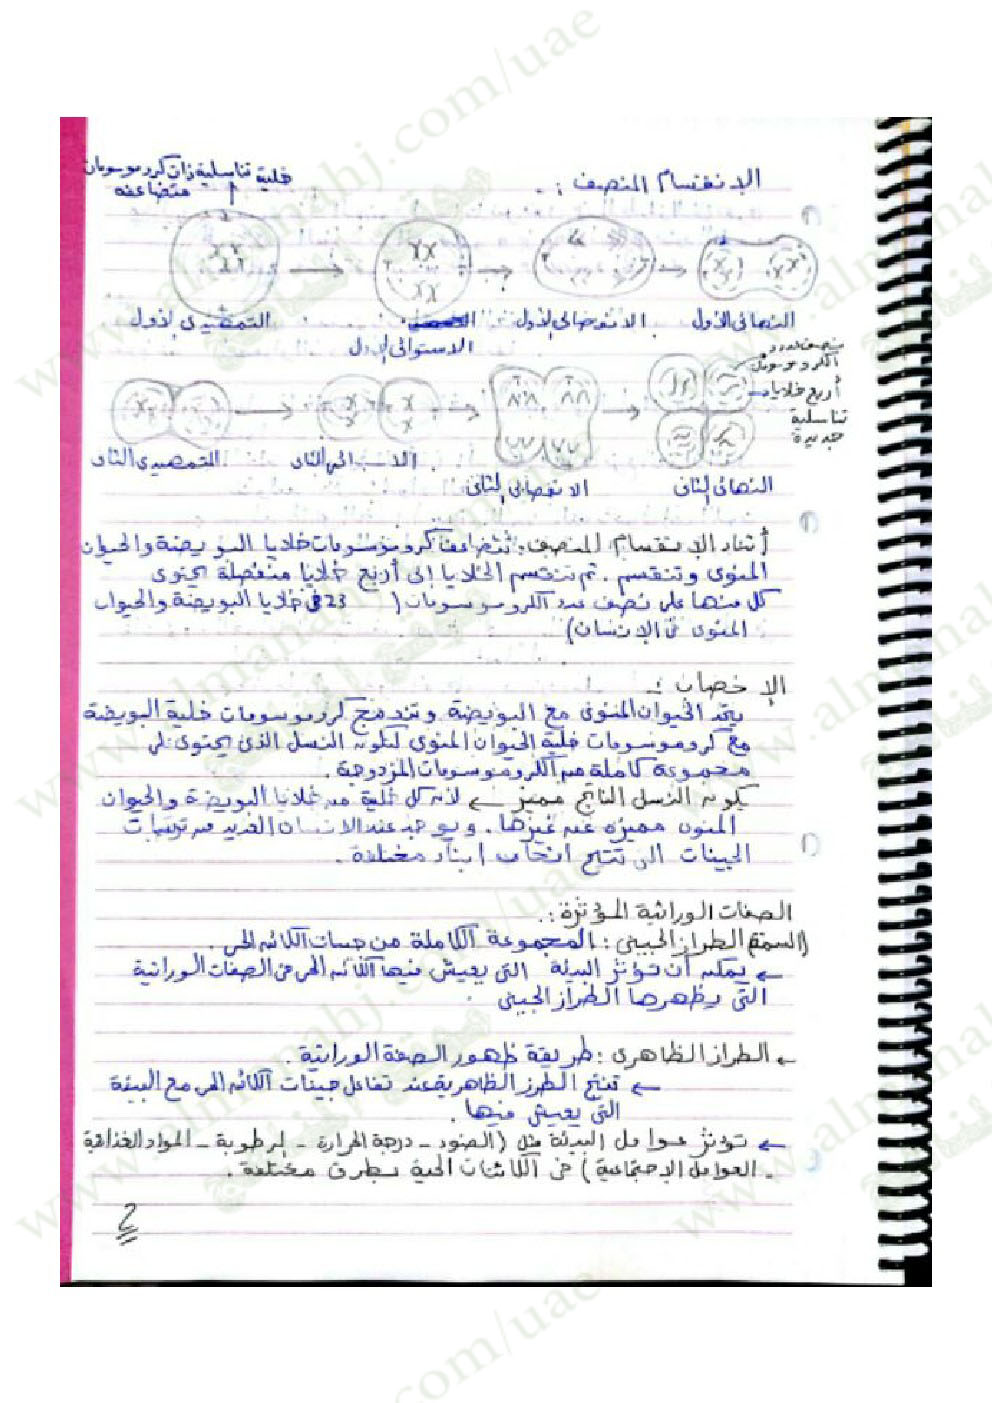 الإنقسام المنصف :-
خلية تناسلية ذات كروموسومات
متضاعفه
التمهيدي الأول
الاستوائي الأول
الانفصالي الأول
النهائي الأول
التمهيدي الثاني
الانفصالي الثاني
النهائي الثاني
نصف عدد
الكروموسومات
أربع خلايا
تناسلية
جديدة
أثناء الإنقسام المنصف: تتضاعف كروموسومات خلايا البويضة والحيوان
المنوي وتنقسم . ثم تنقسم الخلايا إلى أربع خلايا منفصلة يحتوي
كل منها على نصف عدد الكروموسومات ( 23 في خلايا البويضة والحيوان
المنوي في الإنسان)
الإخصاب :-
يتحد الحيوان المنوي مع البويضة وتندمج كروموسومات خلية البويضة
مع كروموسومات خلية الحيوان المنوي لتكون النسل الذي يحتوي على
مجموعة كاملة من الكروموسومات المزدوجة .
يكون النسل الناتج مميز ← لأن كل خلية من خلايا البويضة والحيوان
المنوي مميزة عن غيرها . ويوجد عند الانسان العديد من ترتيبات
الجينات التي تنتج انجاب أبناء مختلفة .
الصفات الوراثية المؤثرة :.
(السمة) الطراز الجيني : المجموعة الكاملة من جينات الكائن الحي .
← يمكن أن تؤثر البيئة التي يعيش فيها الكائن الحي في الصفات الوراثية
التي يظهرها الطراز الجيني
← الطراز الظاهري : طريقة ظهور الصفة الوراثية .
← تنتج الطرز الظاهرية عند تفاعل جينات الكائن الحي مع البيئة
التي يعيش فيها .
← تؤثر عوامل البيئة مثل (الضوء - درجة الحرارة - الرطوبة - المواد الغذائية
- العوامل الإجتماعية) في الكائنات الحية بطرق مختلفة .
2
www.almanahj.com/uae
موقع المناهج